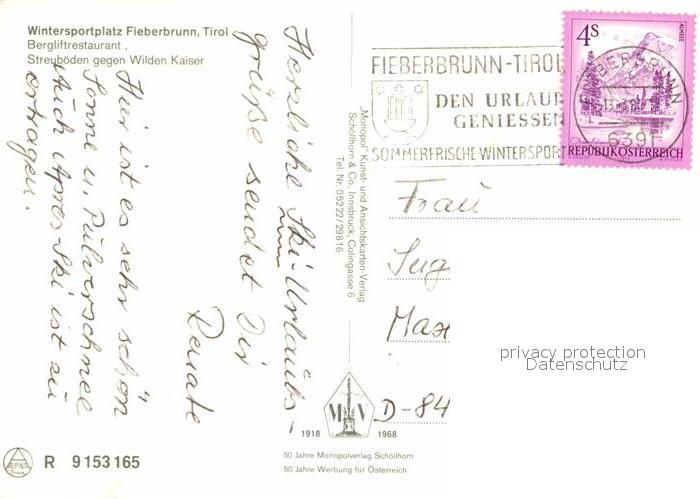 Wintersportplatz Fieberbrunn, Tirol
Bergliftrestaurant .
Streuböden gegen Wilden Kaiser
Herzliche Ski-Urlaubs-
grüße sendet Dir
Renate
Hier ist es sehr schön
Sonne u. Pulverschnee
Auch Apres-Ski ist zu
ertragen.
„Monopol" Kunst- und Ansichtskarten-Verlag
Schöllhorn & Co., Innsbruck, Colingasse 6
Tel. Nr. 05222/29816
FIEBERBRUNN-TIROL
DEN URLAUB
GENIESSEN
SOMMERFRISCHE-WINTERSPORT
4S
ALMSEE
FIEBERBRUNN
6391
REPUBLIK ÖSTERREICH
Frau
Max
D-84
privacy protection
Datenschutz
M V
1918 1968
50 Jahre Monopolverlag Schöllhorn
50 Jahre Werbung für Österreich
R 9153165